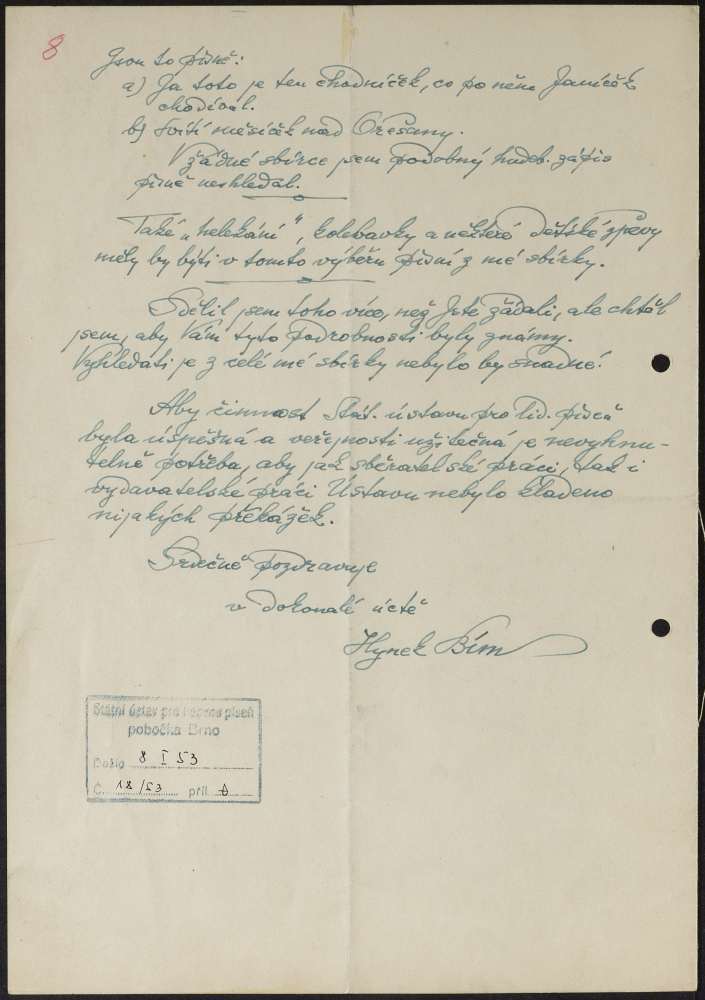 8
Jsou to písně:
a) Ja toto je ten chodníček, co po něm Janíček
chodíval.
b) Svítí měsíček nad Ořešany.
V žádné sbírce jsem podobný hudeb. zápis
písně neshledal.
Také „helekání", kolebavky a některé dětské zpěvy
měly by býti v tomto výběru písní z mé sbírky.
Sdělil jsem toho více, než jste žádali, ale chtěl
jsem, aby Vám tyto podrobnosti byly známy.
Vyhledati je z celé mé sbírky nebylo by snadné.
Aby činnost Stát. ústavu pro lid. píseň
byla úspěšná a veřejnosti užitečná je nevyhnu-
telně potřeba, aby jak sběratelské práci, tak i
vydavatelské práci Ústavu nebylo kladeno
nijakých překážek.
Srdečně pozdravuje
v dokonalé úctě
Hynek Bím
Státní ústav pro lidovou píseň
pobočka Brno
Došlo 8 I 53
Č. 18/53 příl.